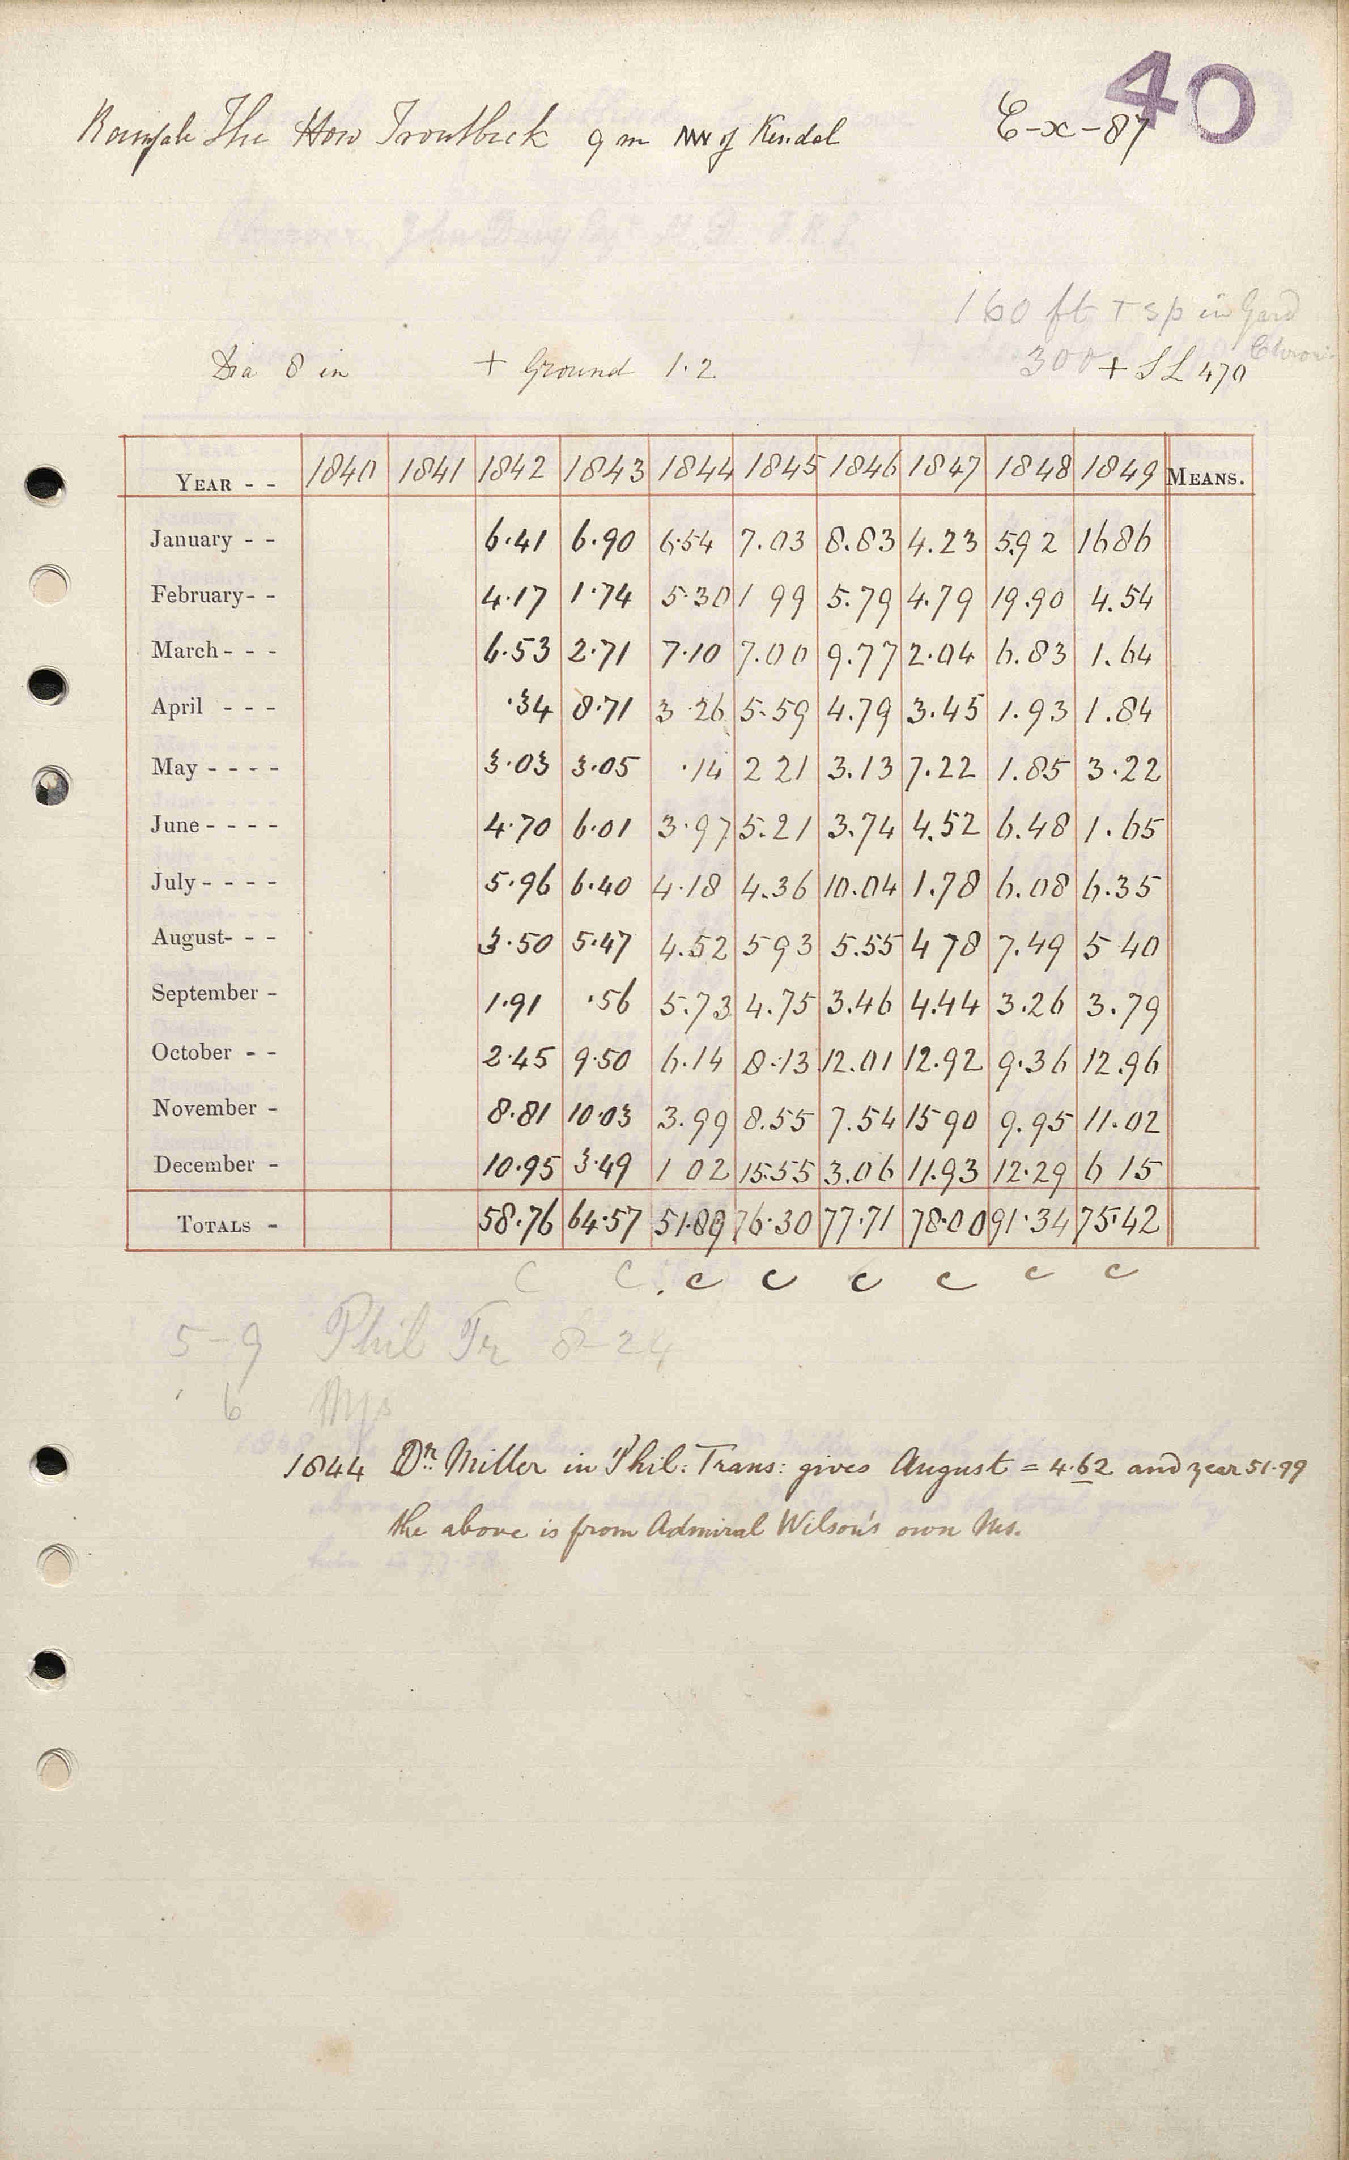 40
The How Troutbeck 9 m NW of Kendal E-x-87
160 ft T sp in Gard
Chron
Dia 8 in + Ground 1.2 300 + SL 470
YEAR - - 1840 1841 1842 1843 1844 1845 1846 1847 1848 1849 MEANS.
January - - 6.41 6.90 6.54 7.03 8.83 4.23 5.92 1686
February - - 4.17 1.74 5.30 1 99 5.79 4.79 19.90 4.54
March - - - 6.53 2.71 7.10 7.00 9.77 2.04 6.83 1.64
April - - - .34 8.71 3.26 5.59 4.79 3.45 1.93 1.84
May - - - - 3.03 3.05 .14 2 21 3.13 7.22 1.85 3.22
June - - - - 4.70 6.01 3.97 5.21 3.74 4.52 6.48 1.65
July - - - - 5.96 6.40 4.18 4.36 10.04 1.78 6.08 6.35
August - - - 3.50 5.47 4.52 5 93 5.55 4 78 7.49 5 40
September - 1.91 .56 5.73 4.75 3.46 4.44 3.26 3.79
October - - 2.45 9.50 6.14 8.13 12.01 12.92 9.36 12.96
November - 8.81 10.03 3.99 8.55 7.54 15 90 9.95 11.02
December - 10.95 3.49 1 02 15.55 3.06 11.93 12.29 6 15
TOTALS - 58.76 64.57 51.89 76.30 77.71 78.00 91.34 75.42
C C C C C C C C
5-9 Phil Tr 8-24
6 Mss
1844 Dr. Miller in Phil: Trans: gives August = 4.62 and year 51.99
the above is from Admiral Wilson's own Ms.